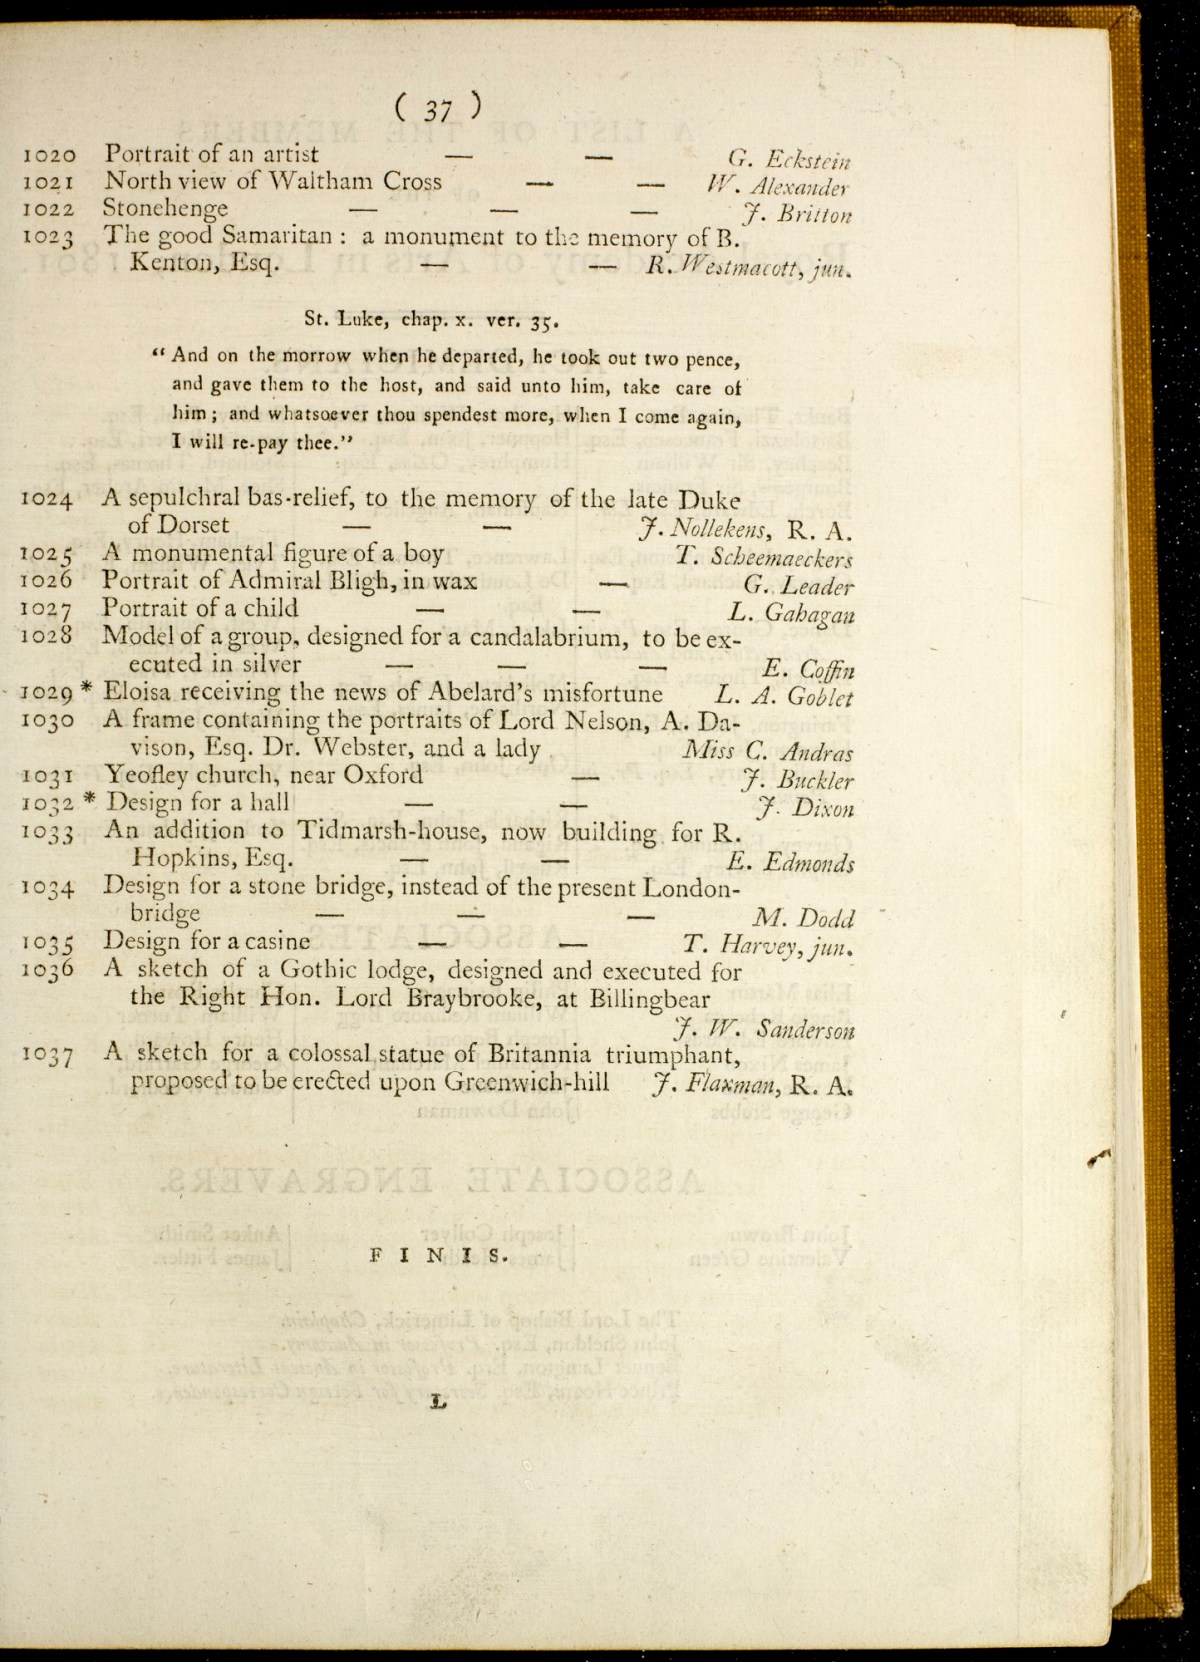 ( 37 )
1020 Portrait of an artist — — G. Eckstein
1021 North view of Waltham Cross — — W. Alexander
1022 Stonehenge — — — J. Britton
1023 The good Samaritan : a monument to the memory of B.
Kenton, Esq. — — R. Westmacott, jun.
St. Luke, chap. x. ver. 35.
“ And on the morrow when he departed, he took out two pence,
and gave them to the host, and said unto him, take care of
him ; and whatsoever thou spendest more, when I come again,
I will re-pay thee.”
1024 A sepulchral bas-relief, to the memory of the late Duke
of Dorset — — J. Nollekens, R. A.
1025 A monumental figure of a boy T. Scheemaeckers
1026 Portrait of Admiral Bligh, in wax — G. Leader
1027 Portrait of a child — — L. Gahagan
1028 Model of a group, designed for a candalabrium, to be ex-
ecuted in silver — — — E. Coffin
1029 * Eloisa receiving the news of Abelard's misfortune L. A. Goblet
1030 A frame containing the portraits of Lord Nelson, A. Da-
vison, Esq. Dr. Webster, and a lady Miss C. Andras
1031 Yeofley church, near Oxford — J. Buckler
1032 * Design for a hall — — J. Dixon
1033 An addition to Tidmarsh-house, now building for R.
Hopkins, Esq. — — E. Edmonds
1034 Design for a stone bridge, instead of the present London-
bridge — — — M. Dodd
1035 Design for a casine — — T. Harvey, jun.
1036 A sketch of a Gothic lodge, designed and executed for
the Right Hon. Lord Braybrooke, at Billingbear
J. W. Sanderson
1037 A sketch for a colossal statue of Britannia triumphant,
proposed to be erected upon Greenwich-hill J. Flaxman, R. A.
FINIS.
L